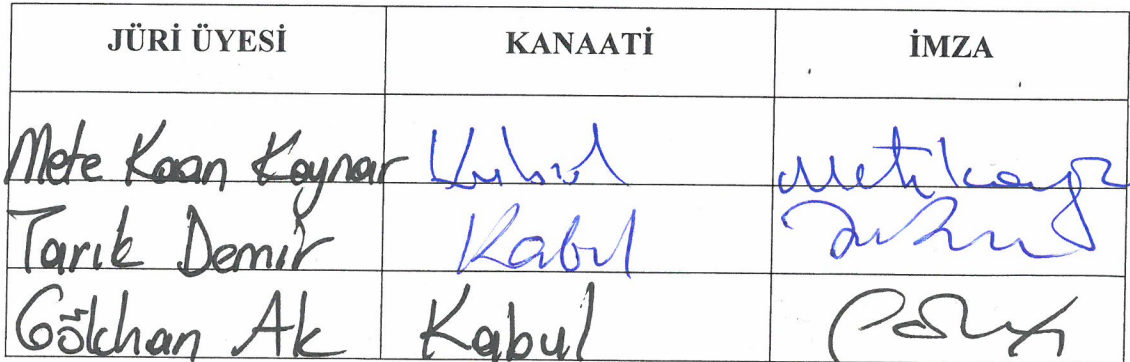 JÜRİ ÜYESİ KANAATİ İMZA
Mete Kaan Kaynar Kabul
Tarık Demir Kabul
Gökhan Ak Kabul